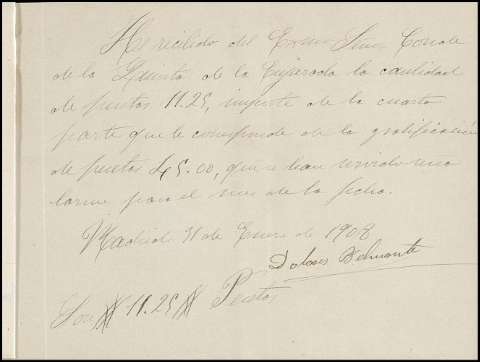 He recibido del Excmo Señor Conde
de la Quinta de la Enjarada la cantidad
de pesetas 11.25, importe de la cuarta
parte que le corresponde de la gratificación
de pesetas 45.00, que se han servido
para el mes de la fecha.
Madrid 31 de Enero de 1908
Dolores Belmonte
Son # 11.25 # Pesetas